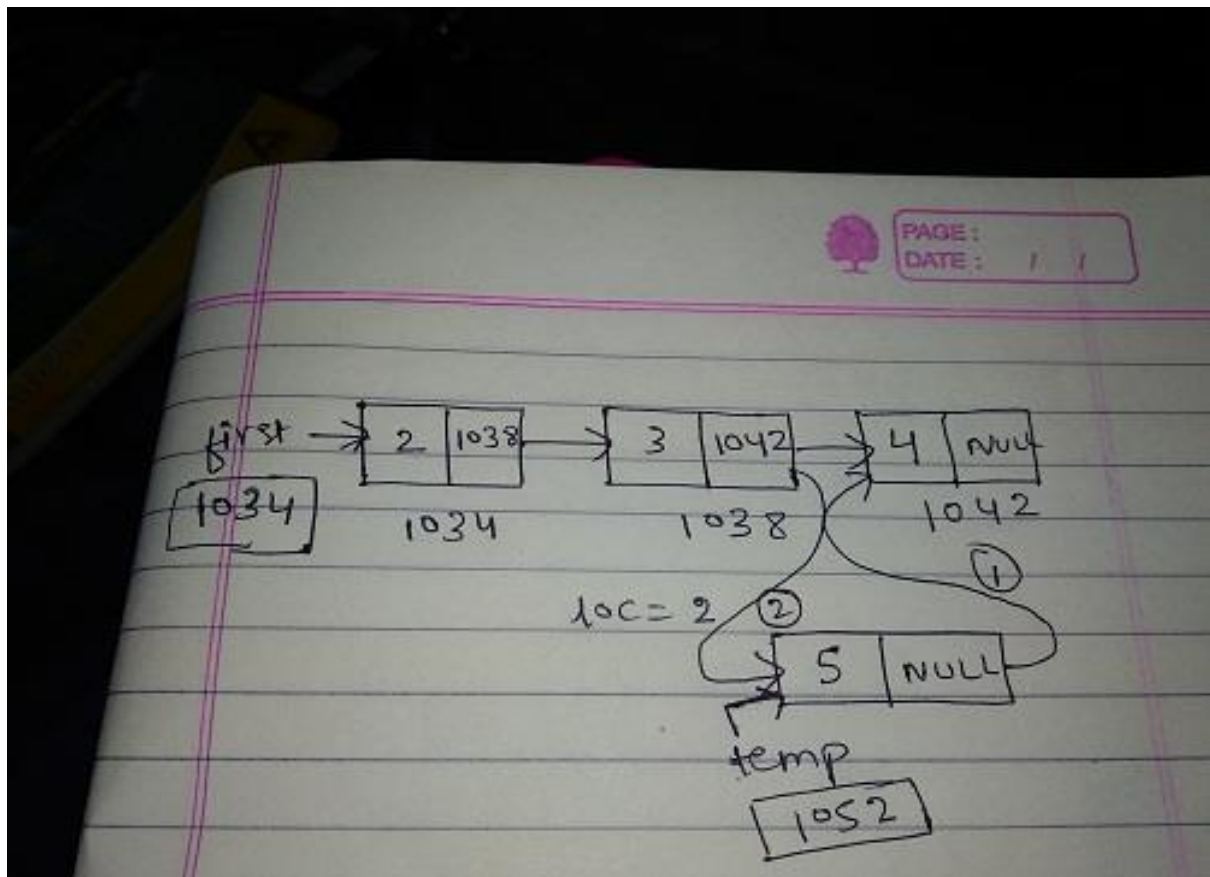 PAGE :
DATE : / /
first 2 1038 3 1042 4 NULL
1034 1034 1038 1042
1
loc = 2 2
5 NULL
temp
1052